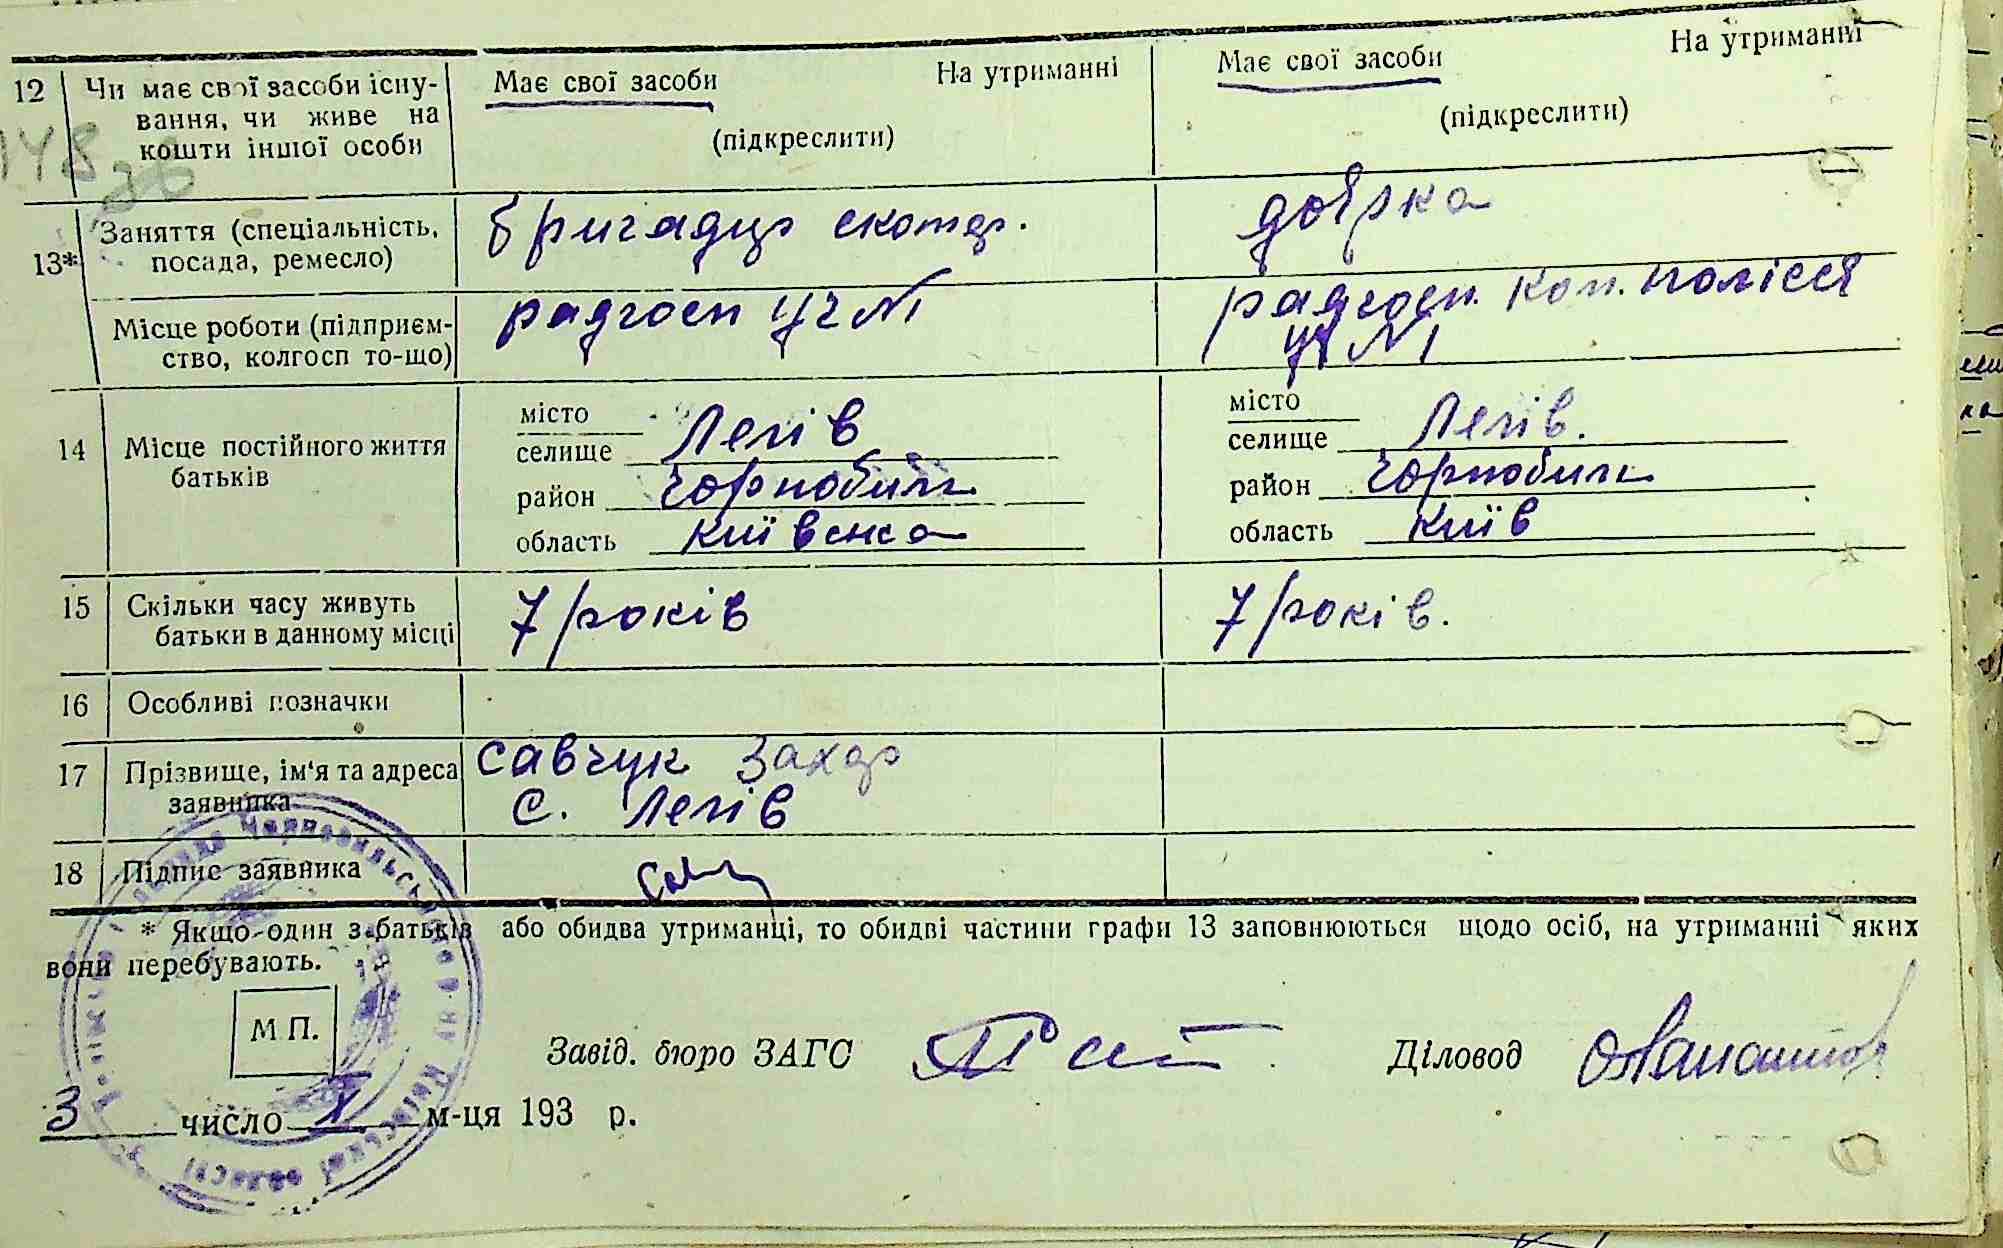 12 Чи має свої засоби існу- Має свої засоби На утриманні Має свої засоби На утриманні
вання, чи живе на
кошти іншої особи (підкреслити) (підкреслити)
148
13* Заняття (спеціальність, бригадир скотар. доярка
посада, ремесло)
Місце роботи (підприєм- радгосп уч №1 радгосп. коп. полісся
ство, колгосп то-що) уч №1
14 Місце постійного життя батьків
місто
селище Лелів
район Чорнобиль
область Київська
місто
селище Лелів.
район Чорнобиль
область Київ
15 Скільки часу живуть 7 років 7 років.
батьки в данному місці
16 Особливі позначки
17 Прізвище, ім'я та адреса Савчук Захар
заявника с. Лелів
18 Підпис заявника Сав
* Якщо один з батьків або обидва утриманці, то обидві частини графи 13 заповнюються щодо осіб, на утриманні яких
вони перебувають.
М П.
Завід. бюро ЗАГС Діловод
3 число X м-ця 193 р.